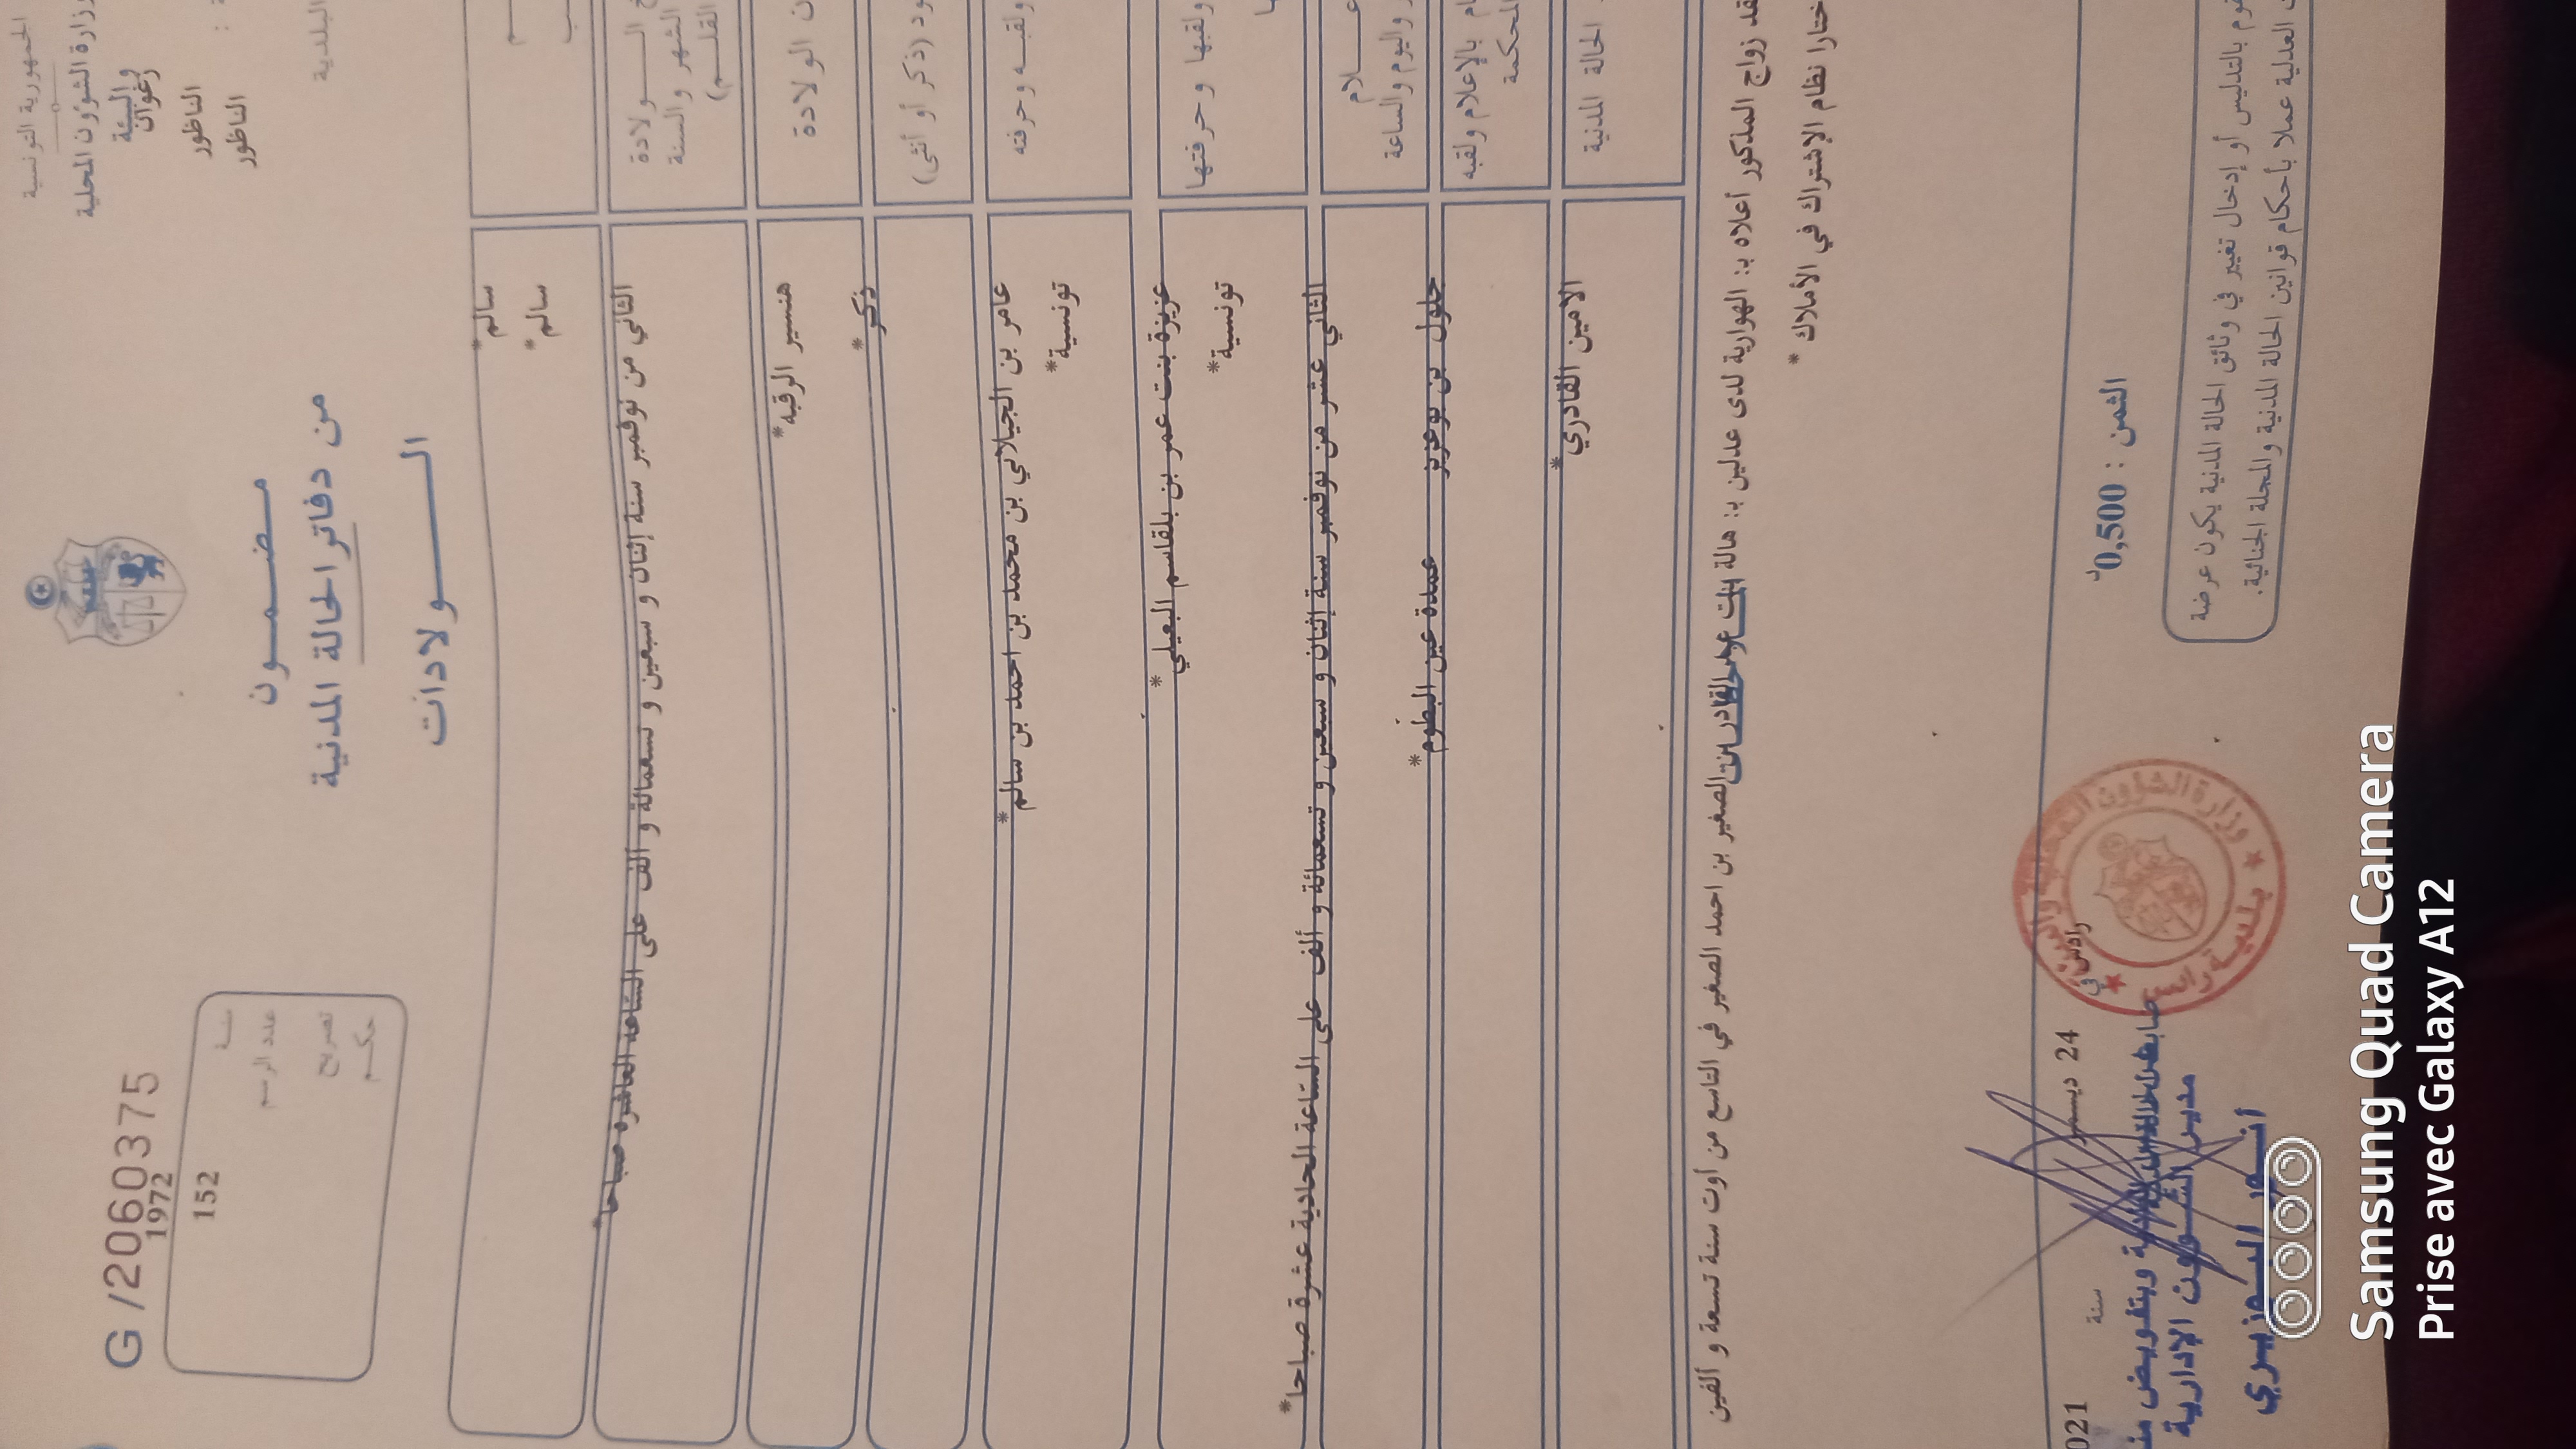 الجمهورية التونسية
وزارة الشؤون المحلية
والبيئة
زغوان
الناظور
الناظور
البلدية
G /2060375
1972
152
سنة
عدد الرسم
تصريح
حكم
مضمون
من دفاتر الحالة المدنية
الولادات
سالم*
سالم*
الولادة
الشهر والسنة
القلم)
الثاني من نوفمبر سنة إثنان و سبعين و تسعمائة و ألف على الساعة العاشرة صباحا*
الولادة
هنسير الرقبه*
(ذكر أو أنثى)
ذكر*
ولقبه وحرفته
عامر بن الجيلاني بن محمد بن احمد بن سالم*
تونسية*
ولقبها وحرفتها
عزيزة بنت عمر بن بلقاسم البعيلي*
تونسية*
واليوم والساعة
الثاني عشر من نوفمبر سنة إثنان و سبعين و تسعمائة و ألف على الساعة الحادية عشرة صباحا*
بالإعلام ولقبه
المحكمة
جلول بن بوعزيز عمدة عين البطوم*
الحالة المدنية
الامين القادري*
زواج المذكور أعلاه بـ: الهوارية لدى عدلين بـ: هالة الصغير بن احمد الصغير في التاسع من أوت سنة تسعة و ألفين
نظام الإشتراك في الأملاك *
الثمن : 0,500د
بالتدليس أو إدخال تغيير في وثائق الحالة المدنية يكون عرضة
العدلية عملا بأحكام قوانين الحالة المدنية والمجلة الجنائية.
رادس في
24 ديسمبر
سنة
021
وبتفويض
مدير الشؤون الإدارية
وزارة الشؤون المحلية والبيئة
بلدية رادس
Samsung Quad Camera
Prise avec Galaxy A12